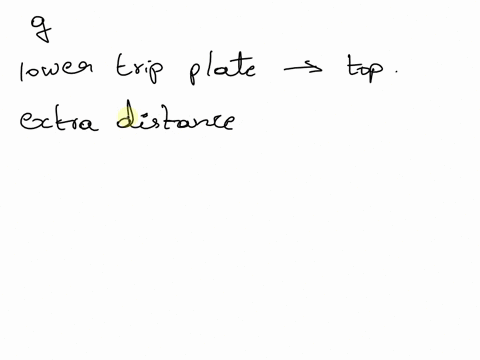 g
lower trip plate → top.
extra distance